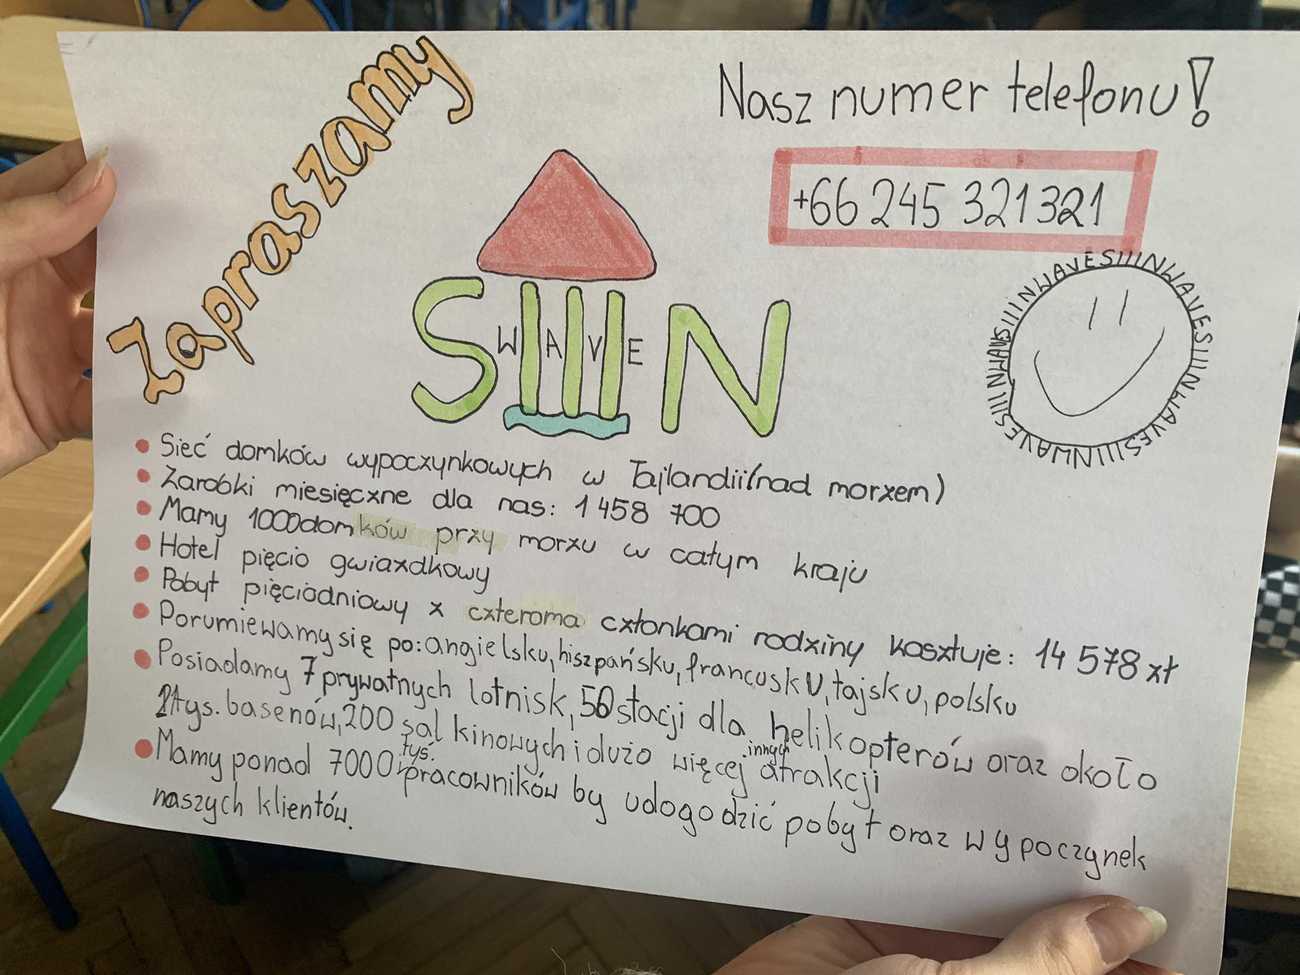 Zapraszamy
Nasz numer telefonu!
+66 245 321321
SIIIN
WAVE
WAVESIIINWAVESIIINWAVESIIINWAVESIIINWAVESIIINWAVESIIIN
Sieć domków wypoczynkowych w Tajlandii(nad morzem)
Zarobki miesięczne dla nas: 1 458 700
Mamy 1000domków przy morzu w całym kraju
Hotel pięcio gwiazdkowy
Pobyt pięciodniowy z czteroma członkami rodziny kosztuje: 14 578 zł
Porumiewamy się po: angielsku, hiszpańsku, francusku, tajsku, polsku
Posiadamy 7 prywatnych lotnisk, 50 stacji dla helikopterów oraz około
tys. basenów, 200 sal kinowych i dużo więcej innych atrakcji
Mamy ponad 7000 tyś. pracowników by udogodzić pobyt oraz wypoczynek
naszych klientów.